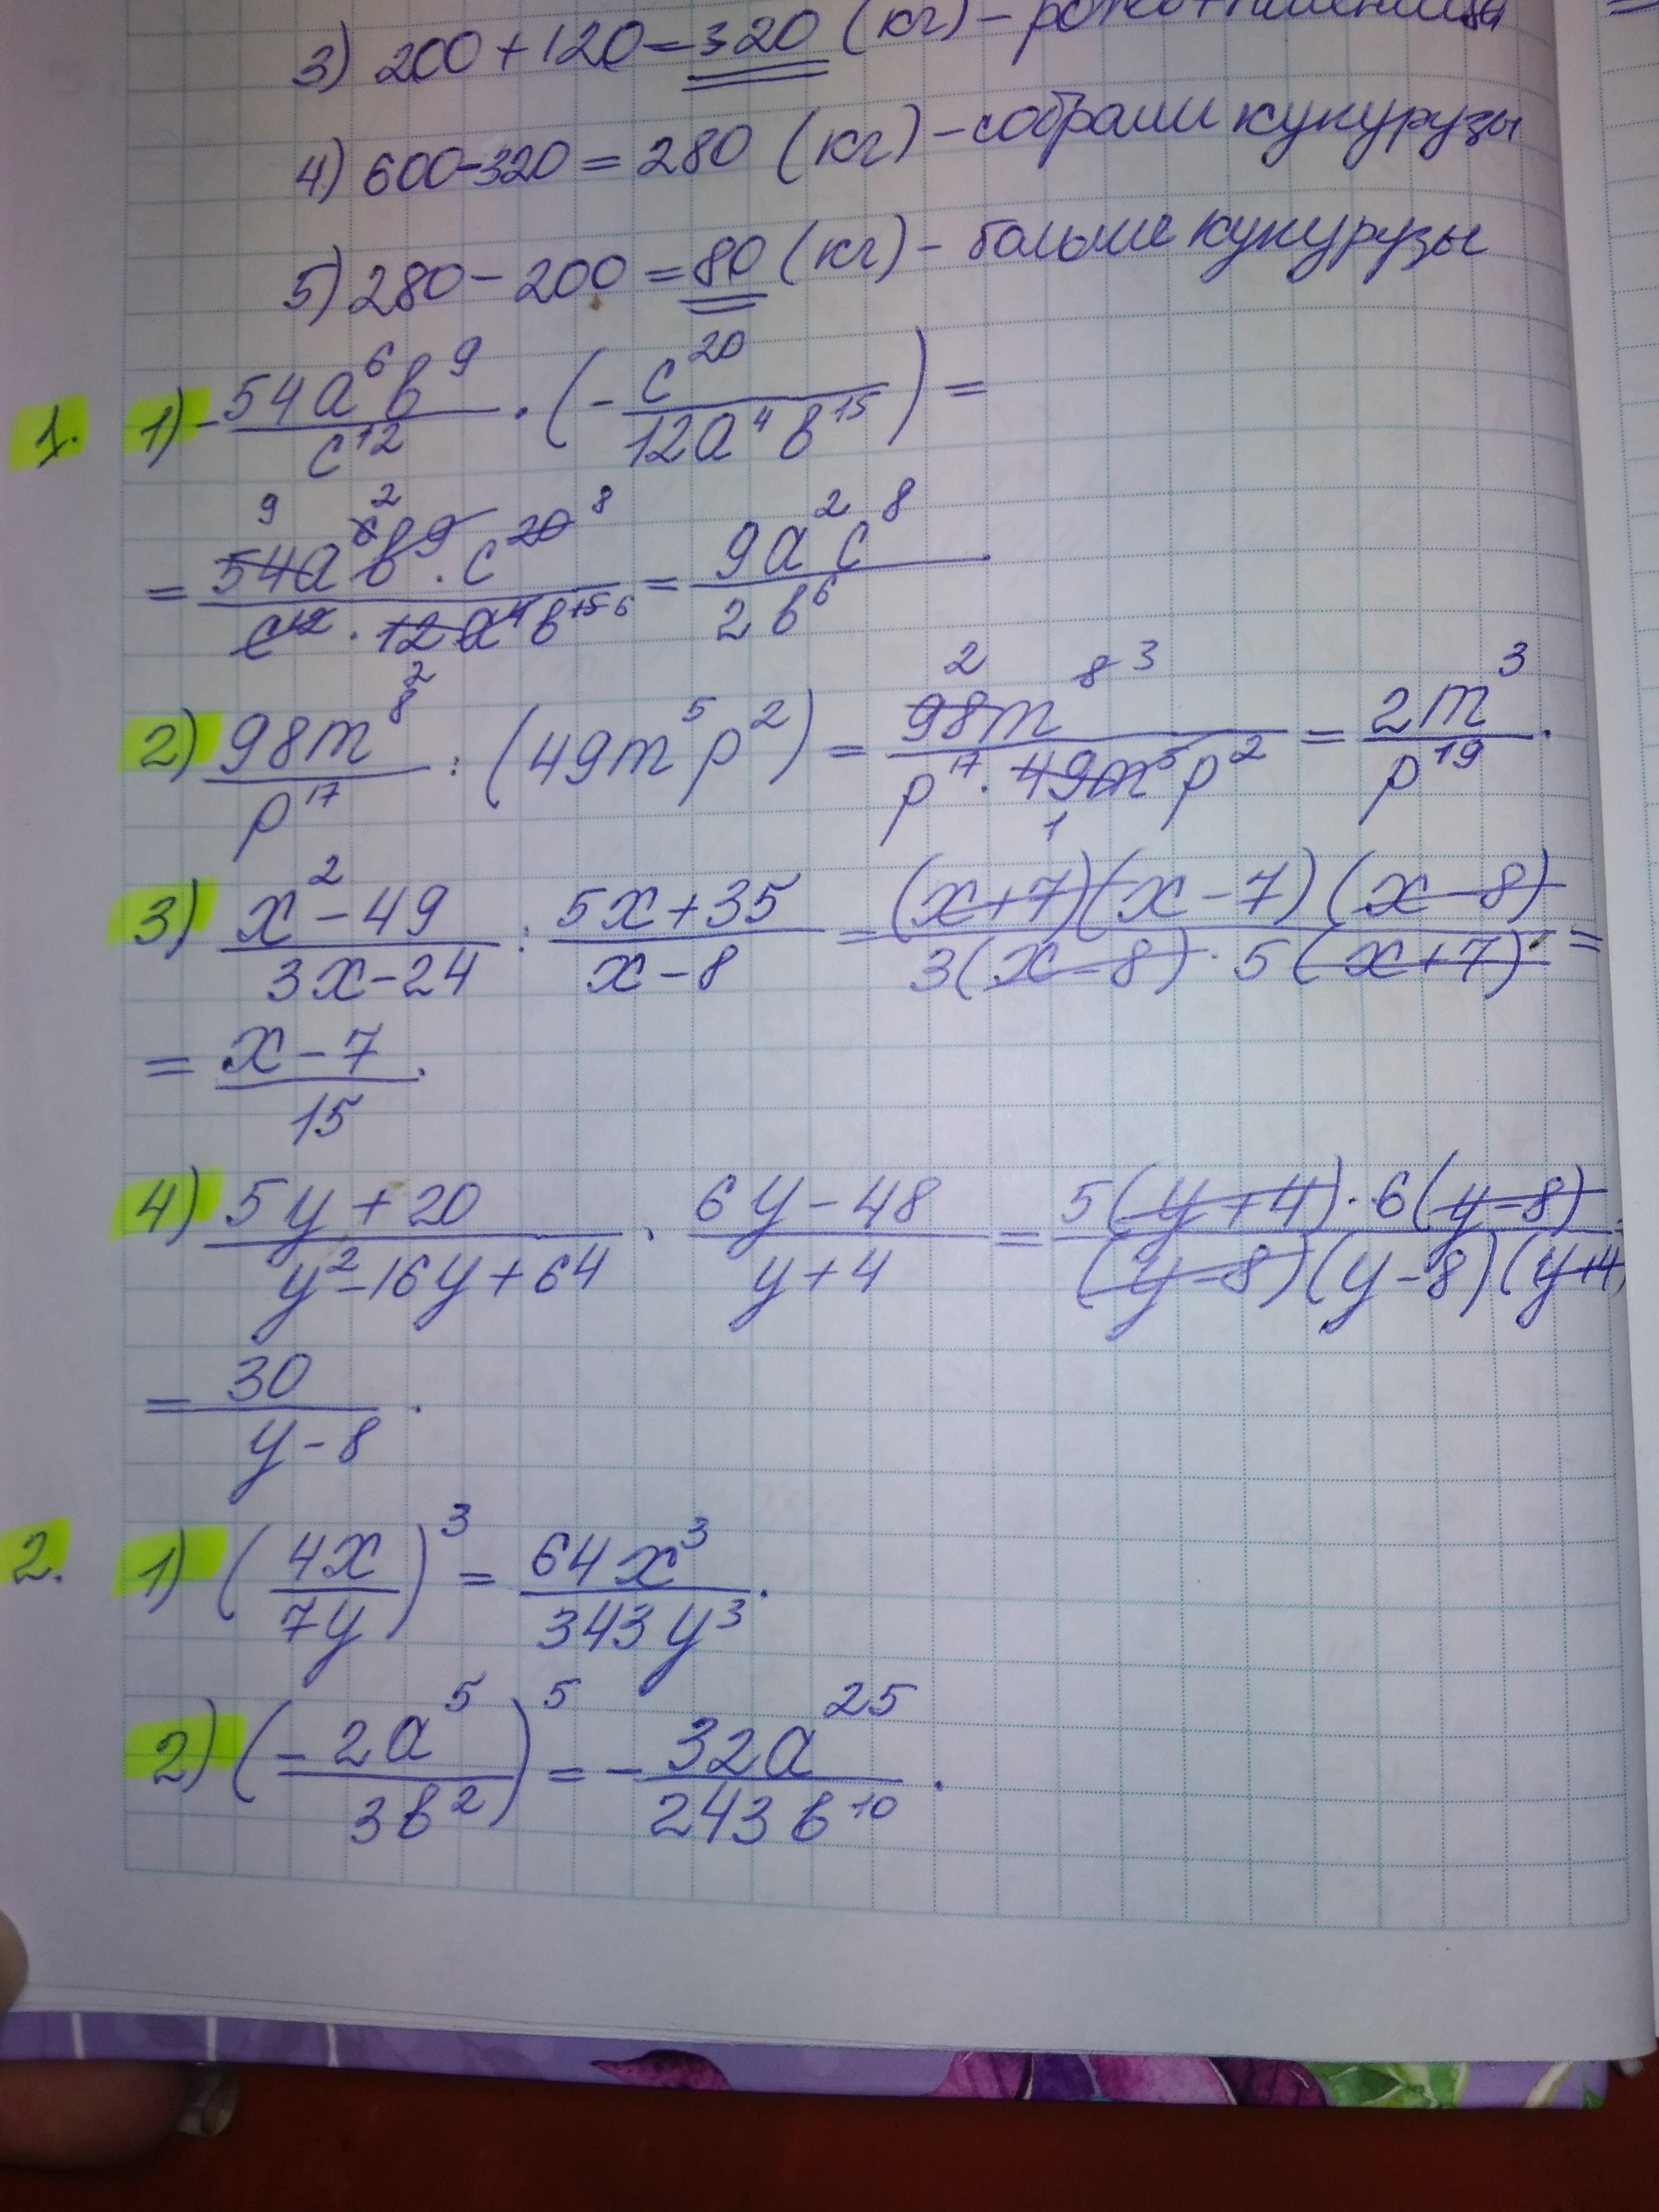 3) 200 + 120 = 320 (кг) - рожь + пшеница
4) 600 - 320 = 280 (кг) - собрали кукурузы
5) 280 - 200 = 80 (кг) - больше кукурузы
1. 1) -54a⁶b⁹/c¹² · (-c²⁰/12a⁴b¹⁵) =
= 54a⁶b⁹ · c²⁰/c¹² · 12a⁴b¹⁵ = 9a²c⁸/2b⁶
2) 98m⁸/p¹⁷ : (49m⁵p²) = 98m⁸/p¹⁷ · 49m⁵p² = 2m³/p¹⁹.
3) x² - 49/3x - 24 : 5x + 35/x - 8 = (x + 7)(x - 7)(x - 8)/3(x - 8) · 5(x + 7) =
= x - 7/15.
4) 5y + 20/y² - 16y + 64 · 6y - 48/y + 4 = 5(y + 4) · 6(y - 8)/(y - 8)(y - 8)(y + 4) =
= 30/y - 8.
2. 1) (4x/7y)³ = 64x³/343y³.
2) (-2a⁵/3b²)⁵ = -32a²⁵/243b¹⁰.